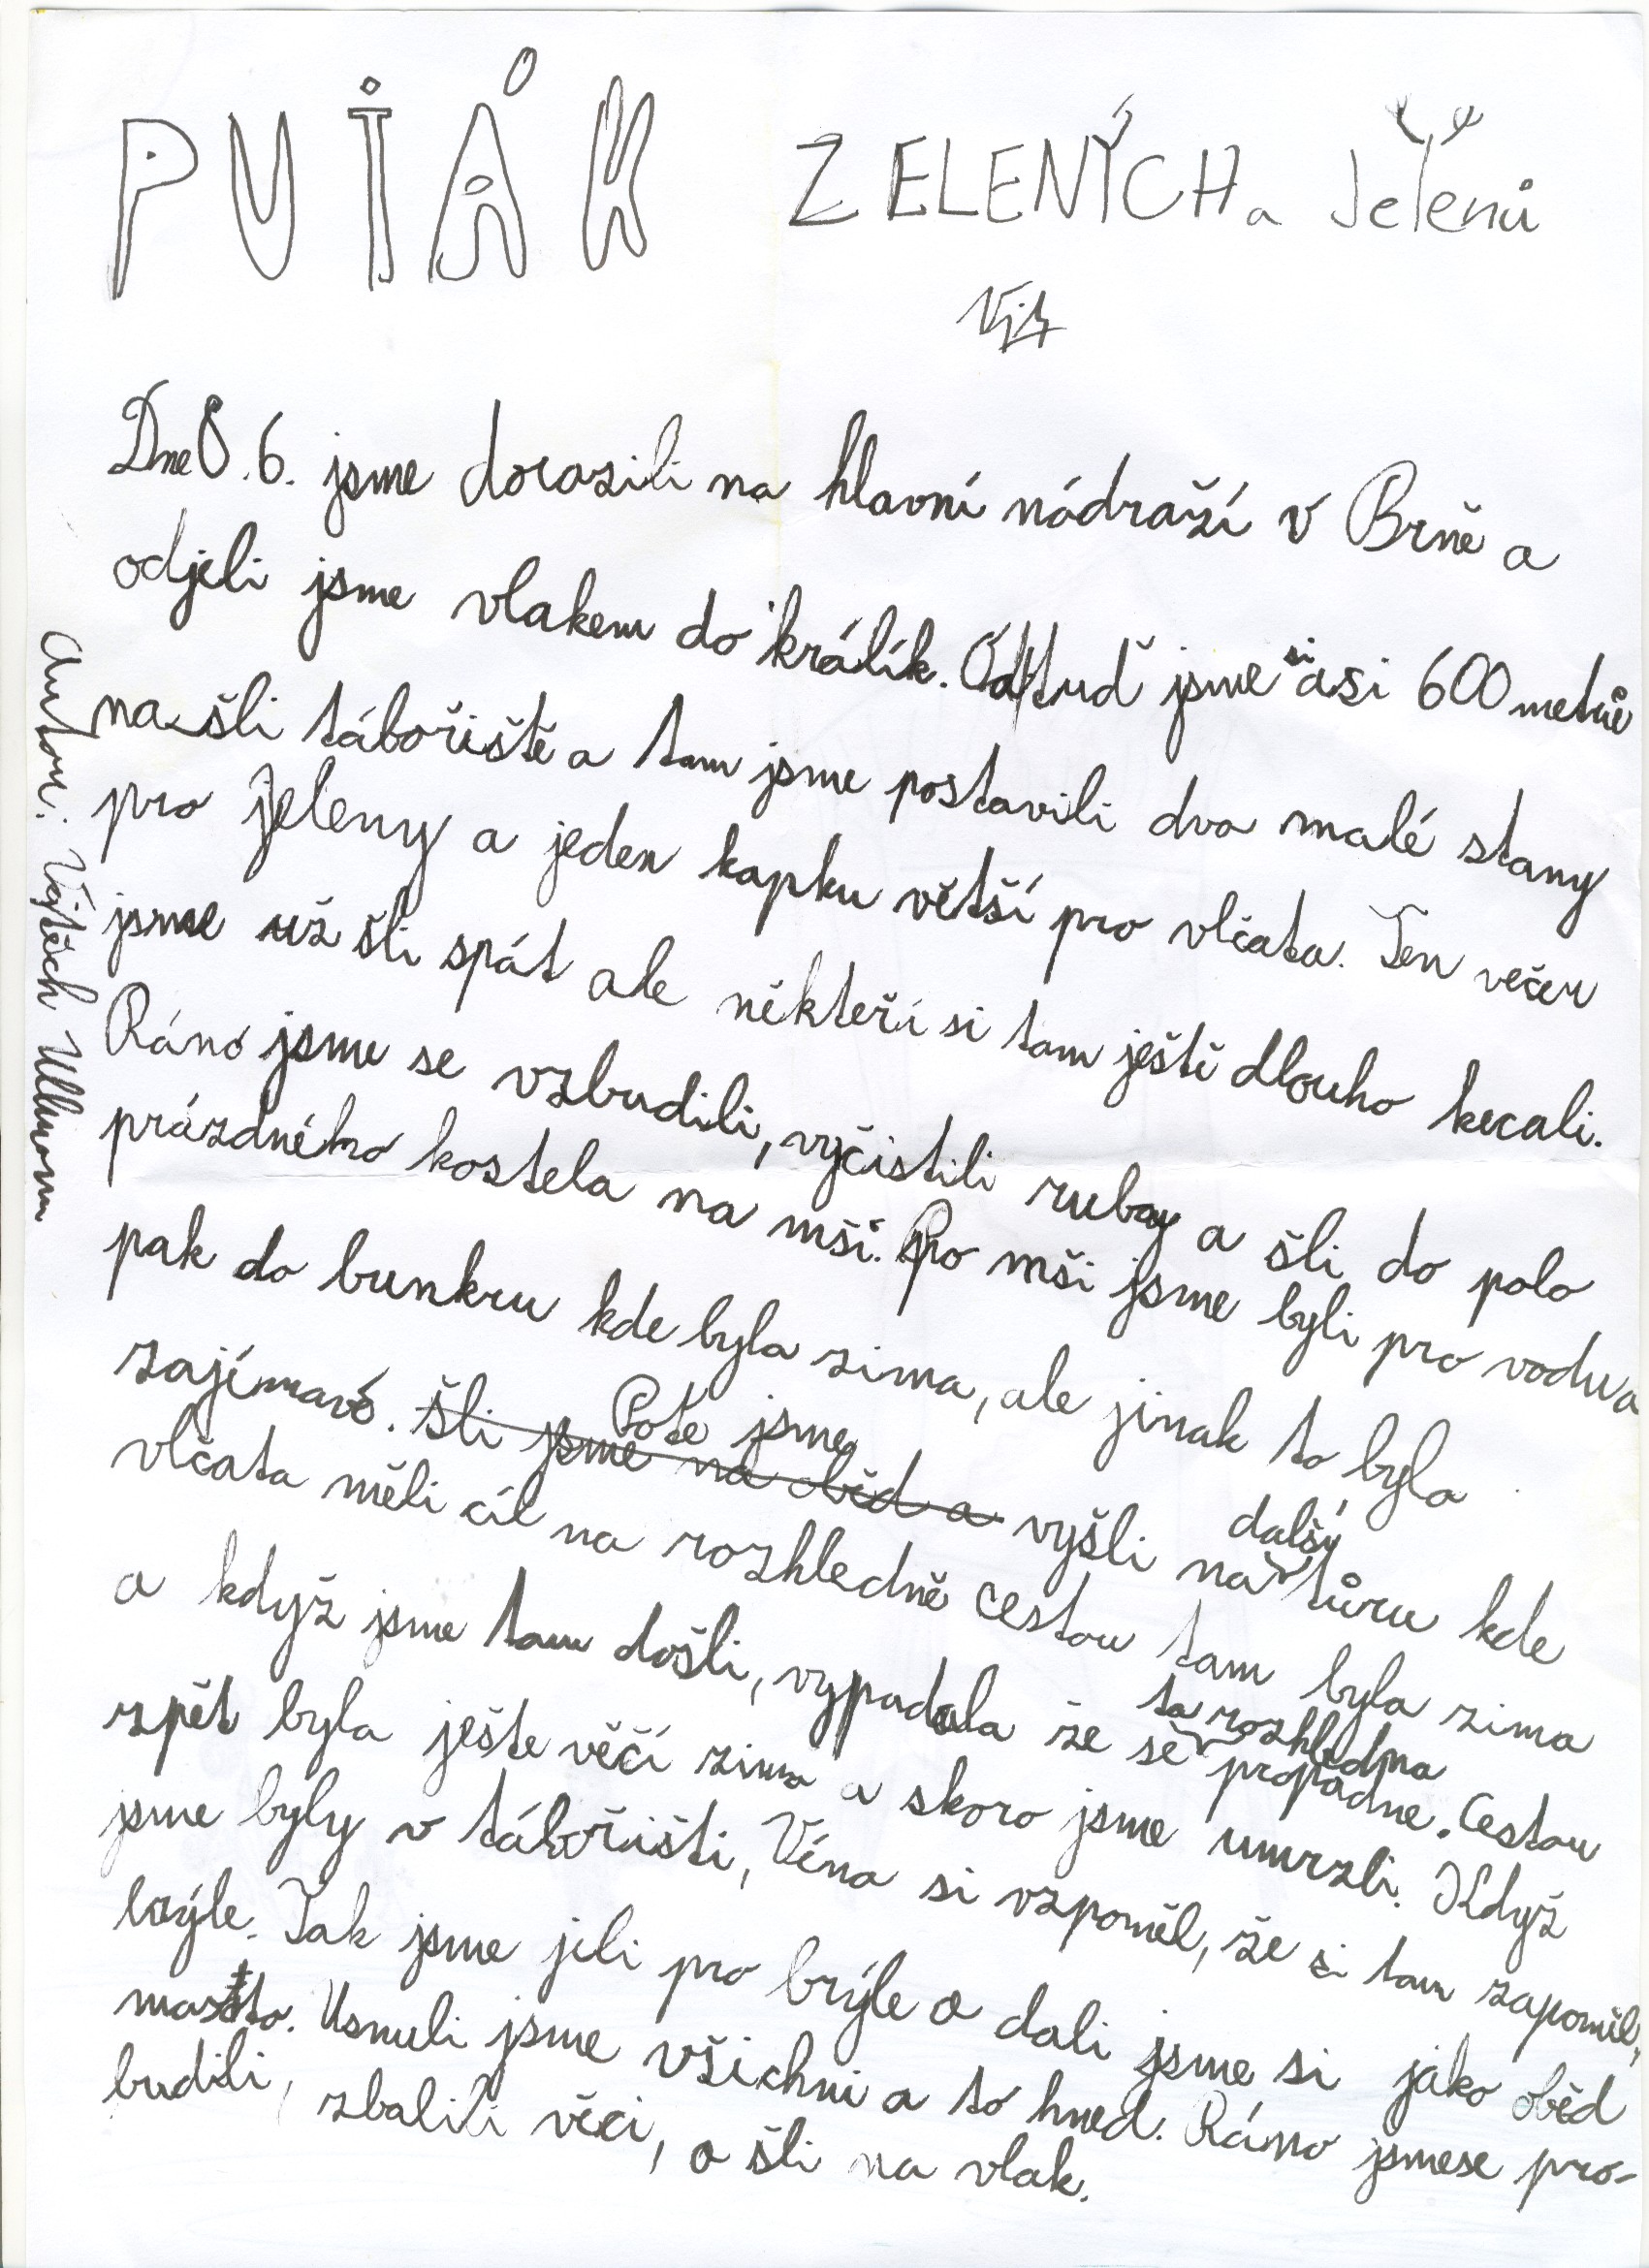 PUŤÁK ZELENÝCH a Jelenů
Dne 8.6. jsme dorazili na hlavní nádraží v Brně a
odjeli jsme vlakem do králík. Odtuď jsme si asi 600 metrů
našli tábořiště a tam jsme postavili dva malé stany
pro jeleny a jeden kapku větší pro vlčata. Ten večer
jsme už šli spát ale někteří si tam ještě dlouho kecali.
Ráno jsme se vzbudili, vyčistili zuby a šli do polo
prázdného kostela na mši. Po mši jsme byli pro vodu a
pak do bunkru kde byla zima, ale jinak to bylo
zajímavé. Šli jsme na oběd a Poté jsme vyšli na další túru kde
vlčata měli cíl na rozhledně cestou tam byla zima
a když jsme tam došli, vypadala že se ta rozhledna propadne. Cestou
zpět byla ješte věčí zima a skoro jsme umrzli. Když
jsme byly v tábořišti, Véna si vzpoměl, že si tam zapoměl,
brýle. Tak jsme jeli pro brýle a dali jsme si jako oběd
maso. Usnuli jsme všichni a to hned. Ráno jsme se pro-
budili, zbalili věci, a šli na vlak.
Autor: Vojtěch Ullmann